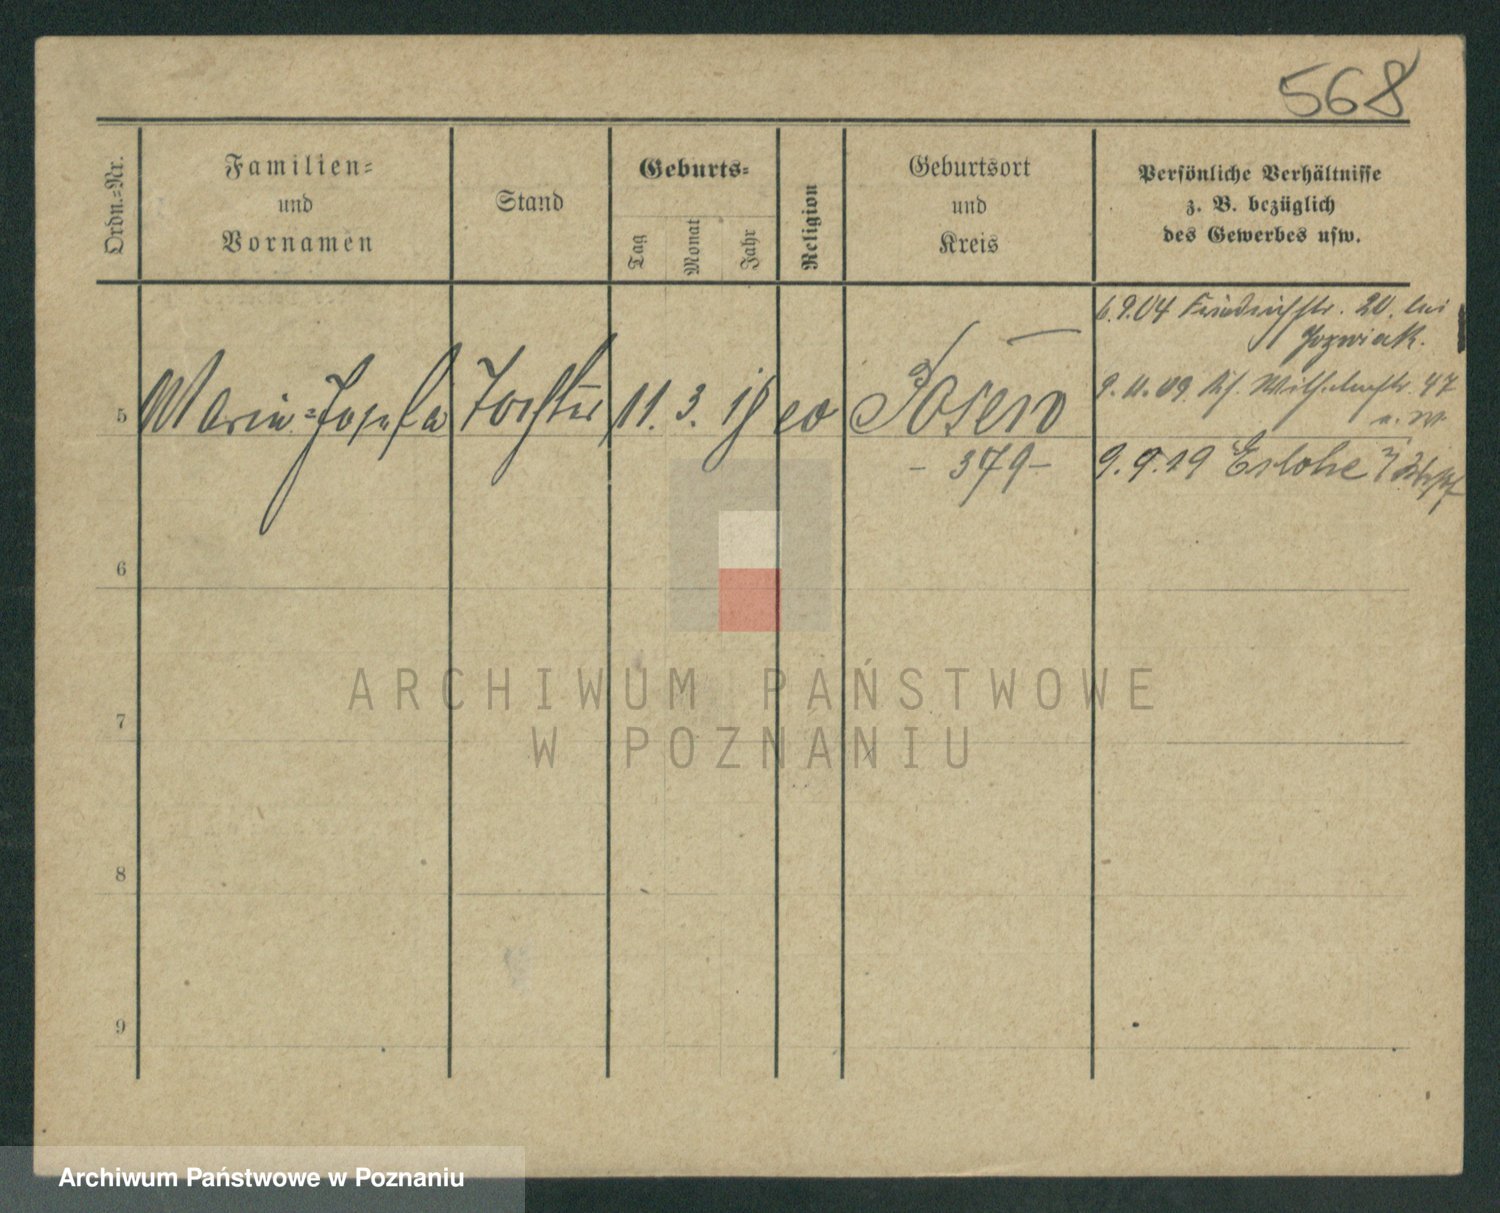 568
Ordn.=Nr.
Familien=
und
Vornamen
Stand
Geburts=
Tag
Monat
Jahr
Religion
Geburtsort
und
Kreis
Persönliche Verhältnisse
z. B. bezüglich
des Gewerbes usw.
6.9.04 Friedrichstr. 20. bei
Jozwiak.
5 Marie=Josefa Tochter 11. 3. 19 Posen
9.11.09 Wilhelmstr. 47
- 379 -
9.9.19
6
7
8
9
ARCHIWUM PAŃSTWOWE
W POZNANIU
Archiwum Państwowe w Poznaniu